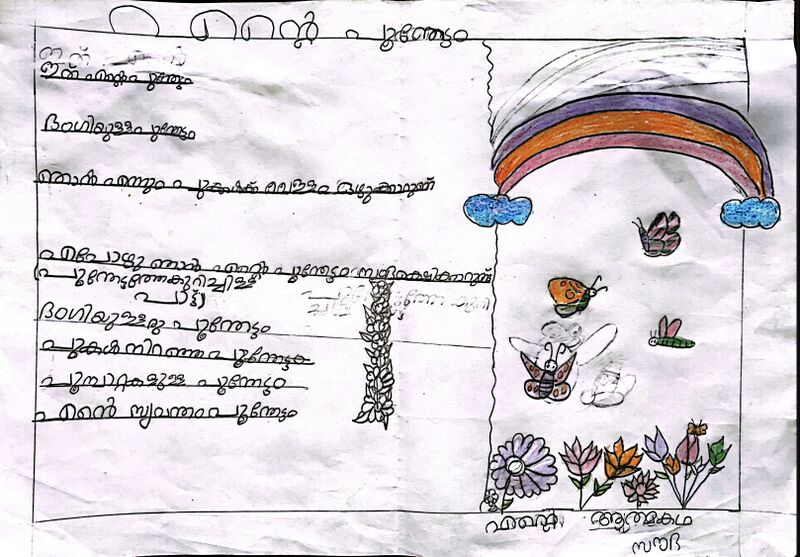 എൻ്റെ പൂന്തോട്ടം
ഇത് എൻ്റെ പൂന്തോട്ടം
ഭംഗിയുള്ള പൂന്തോട്ടം
ഞാൻ എന്നും പൂക്കൾക്ക് വെള്ളം ഒഴുക്കാറുണ്ട്
എപോഴു ഞാൻ എൻ്റെ പൂന്തോട്ടം
(പൂന്തോട്ടത്തേകുറിച്ചിള്ള
പാട്ട്)
ഭംഗിയുള്ളരു പൂന്തേട്ടം
പൂകൾ നിറഞ്ഞ പൂന്തേട്ടം
പൂമ്പാറ്റകളുള്ള പൂന്തേട്ടം
എൻ്റെ സ്വന്തം പൂന്തേട്ടം
എൻ്റെ ആത്മകഥ